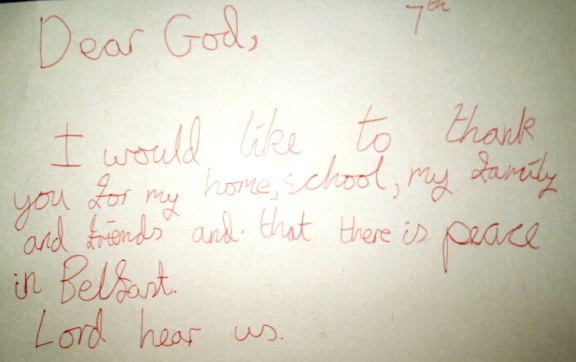 7th
Dear God,
I would like to thank
you for my home, school, my family
and friends and that there is peace
in Belfast.
Lord hear us.